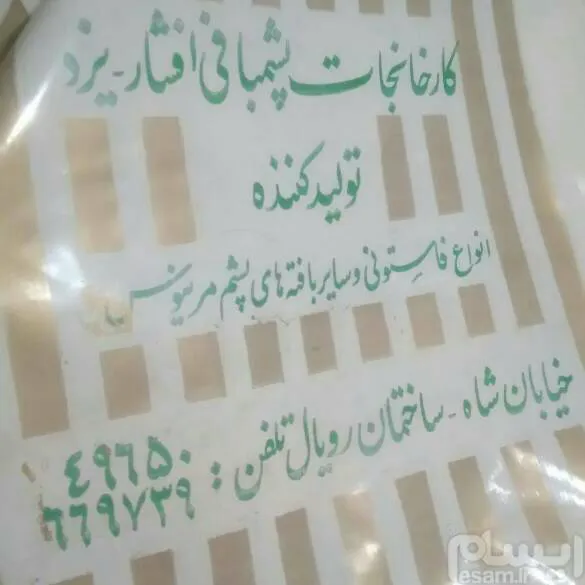 کارخانجات پشمبافی افشار - یزد
تولید کننده
انواع فاستونی و سایر بافته های پشم مرینوس
خیابان شاه - ساختمان رویال تلفن : ٤٩٦٥٠
٦٦٩٧٣٩
ایسام
esam.ir